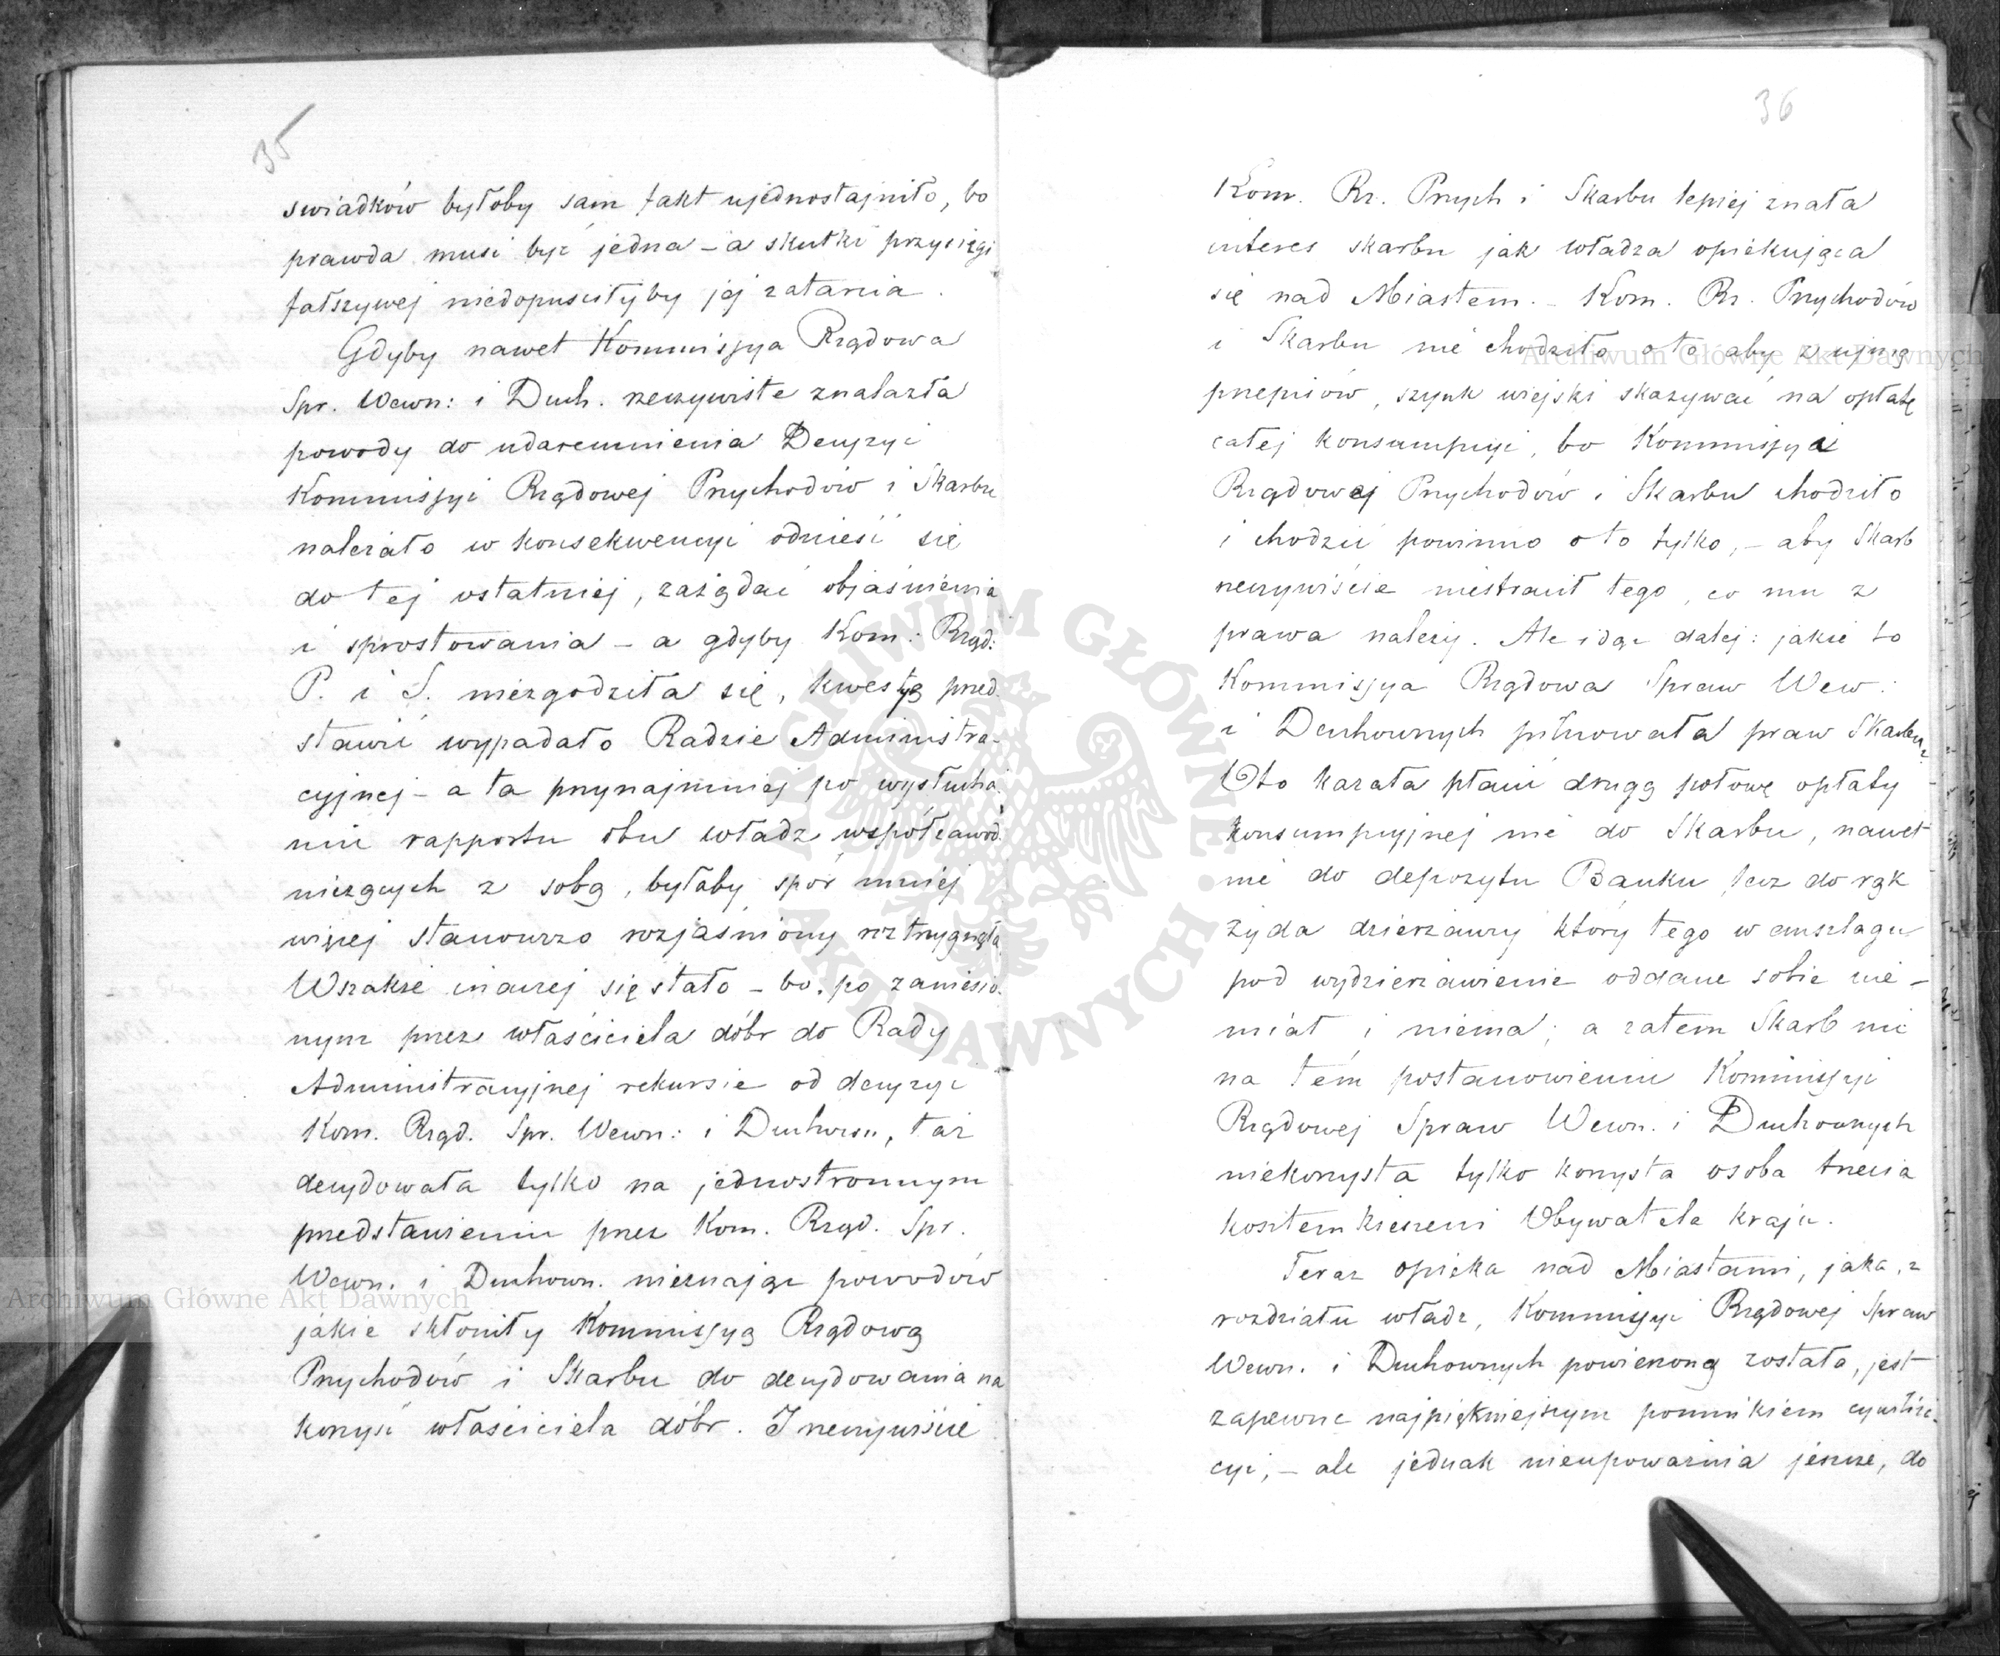 35
swiadków byłoby sam fakt ujednostajniło, bo
prawda musi być jedna – a skutki przysięgi
fałszywej niedopuściłyby jej zatarcia.
Gdyby nawet Kommissya Rządowa
Spr. Wewn: i Duch. rzeczywiste znalazła
powody do udaremnienia Decyzyi
Kommissyi Rządowej Przychodów i Skarbu
należało w konsekwencyi odnieść się
do tej ostatniej, zażądać objaśnienia
i sprostowania – a gdyby Kom: Rząd:
P. i S. niezgodziła się, kwestyą przed.
stawić wypadało Radzie Administra-
cyjnej – a ta przynajmniej po wysłucha.
niu rapportu obu władz współzawod.
niczących z sobą, byłaby spór mniej
więcej stanowczo rozjaśniony roztrzygnęła
Wszakże inaczej się stało – bo, po zaniesio.
nym przez właściciela dóbr do Rady
Administracyjnej rekursie od decyzyi
Kom. Rząd. Spr. Wewn: i Duchown, taż
decydowała tylko na jednostronnym
przedstawieniu przez Kom. Rząd. Spr.
Wewn. i Duchown. nieznając powodów
jakie skłoniły Kommissyą Rządową
Przychodów i Skarbu do decydowania na
korzyść właściciela dóbr. I rzeczywiście
36
Kom. Rz. Przych i Skarbu lepiej znała
interes skarbu jak władza opiekująca
się nad Miastem. – Kom. Rz. Przychodów
i Skarbu nie chodziło o to aby z ujmą
przepisów, szynk wiejski skazywać na opłatę
całej konsumpcyi, bo Kommissyi
Rządowej Przychodów i Skarbu chodziło
i chodzić powinno o to tylko, – aby Skarb
rzeczywiście niestracił tego, co mu z
prawa należy. Ale idąc dalej: jakże to
Kommissya Rządowa Spraw Wew:
i Duchownych pilnowała praw Skarbu?
Oto kazała płacić drugą połowę opłaty
konsumpcyjnej nie do Skarbu, nawet
nie do depozytu Banku, lecz do rąk
żyda dzierżawcy który tego w anszlagu
pod wydzierżawienie oddane sobie nie –
miał i niema; a zatem Skarb nic
na tém postanowieniu Kommissyi
Rządowej Spraw Wewn. i Duchownych
niekorzysta tylko korzysta osoba trzecia
kosztem kieszeni Obywatela kraju.
Teraz opieka nad Miastami, jaka, z
rozdziału władz, Kommissyi Rządowej Spraw
Wewn. i Duchownych powierzoną została, jest
zapewne najpiękniejszym pomnikiem cywiliza.
cyi, – ale jednak nieupoważnia jeszcze, do
Archiwum Główne Akt Dawnych
Archiwum Główne Akt Dawnych
ARCHIWUM GŁÓWNE AKT DAWNYCH